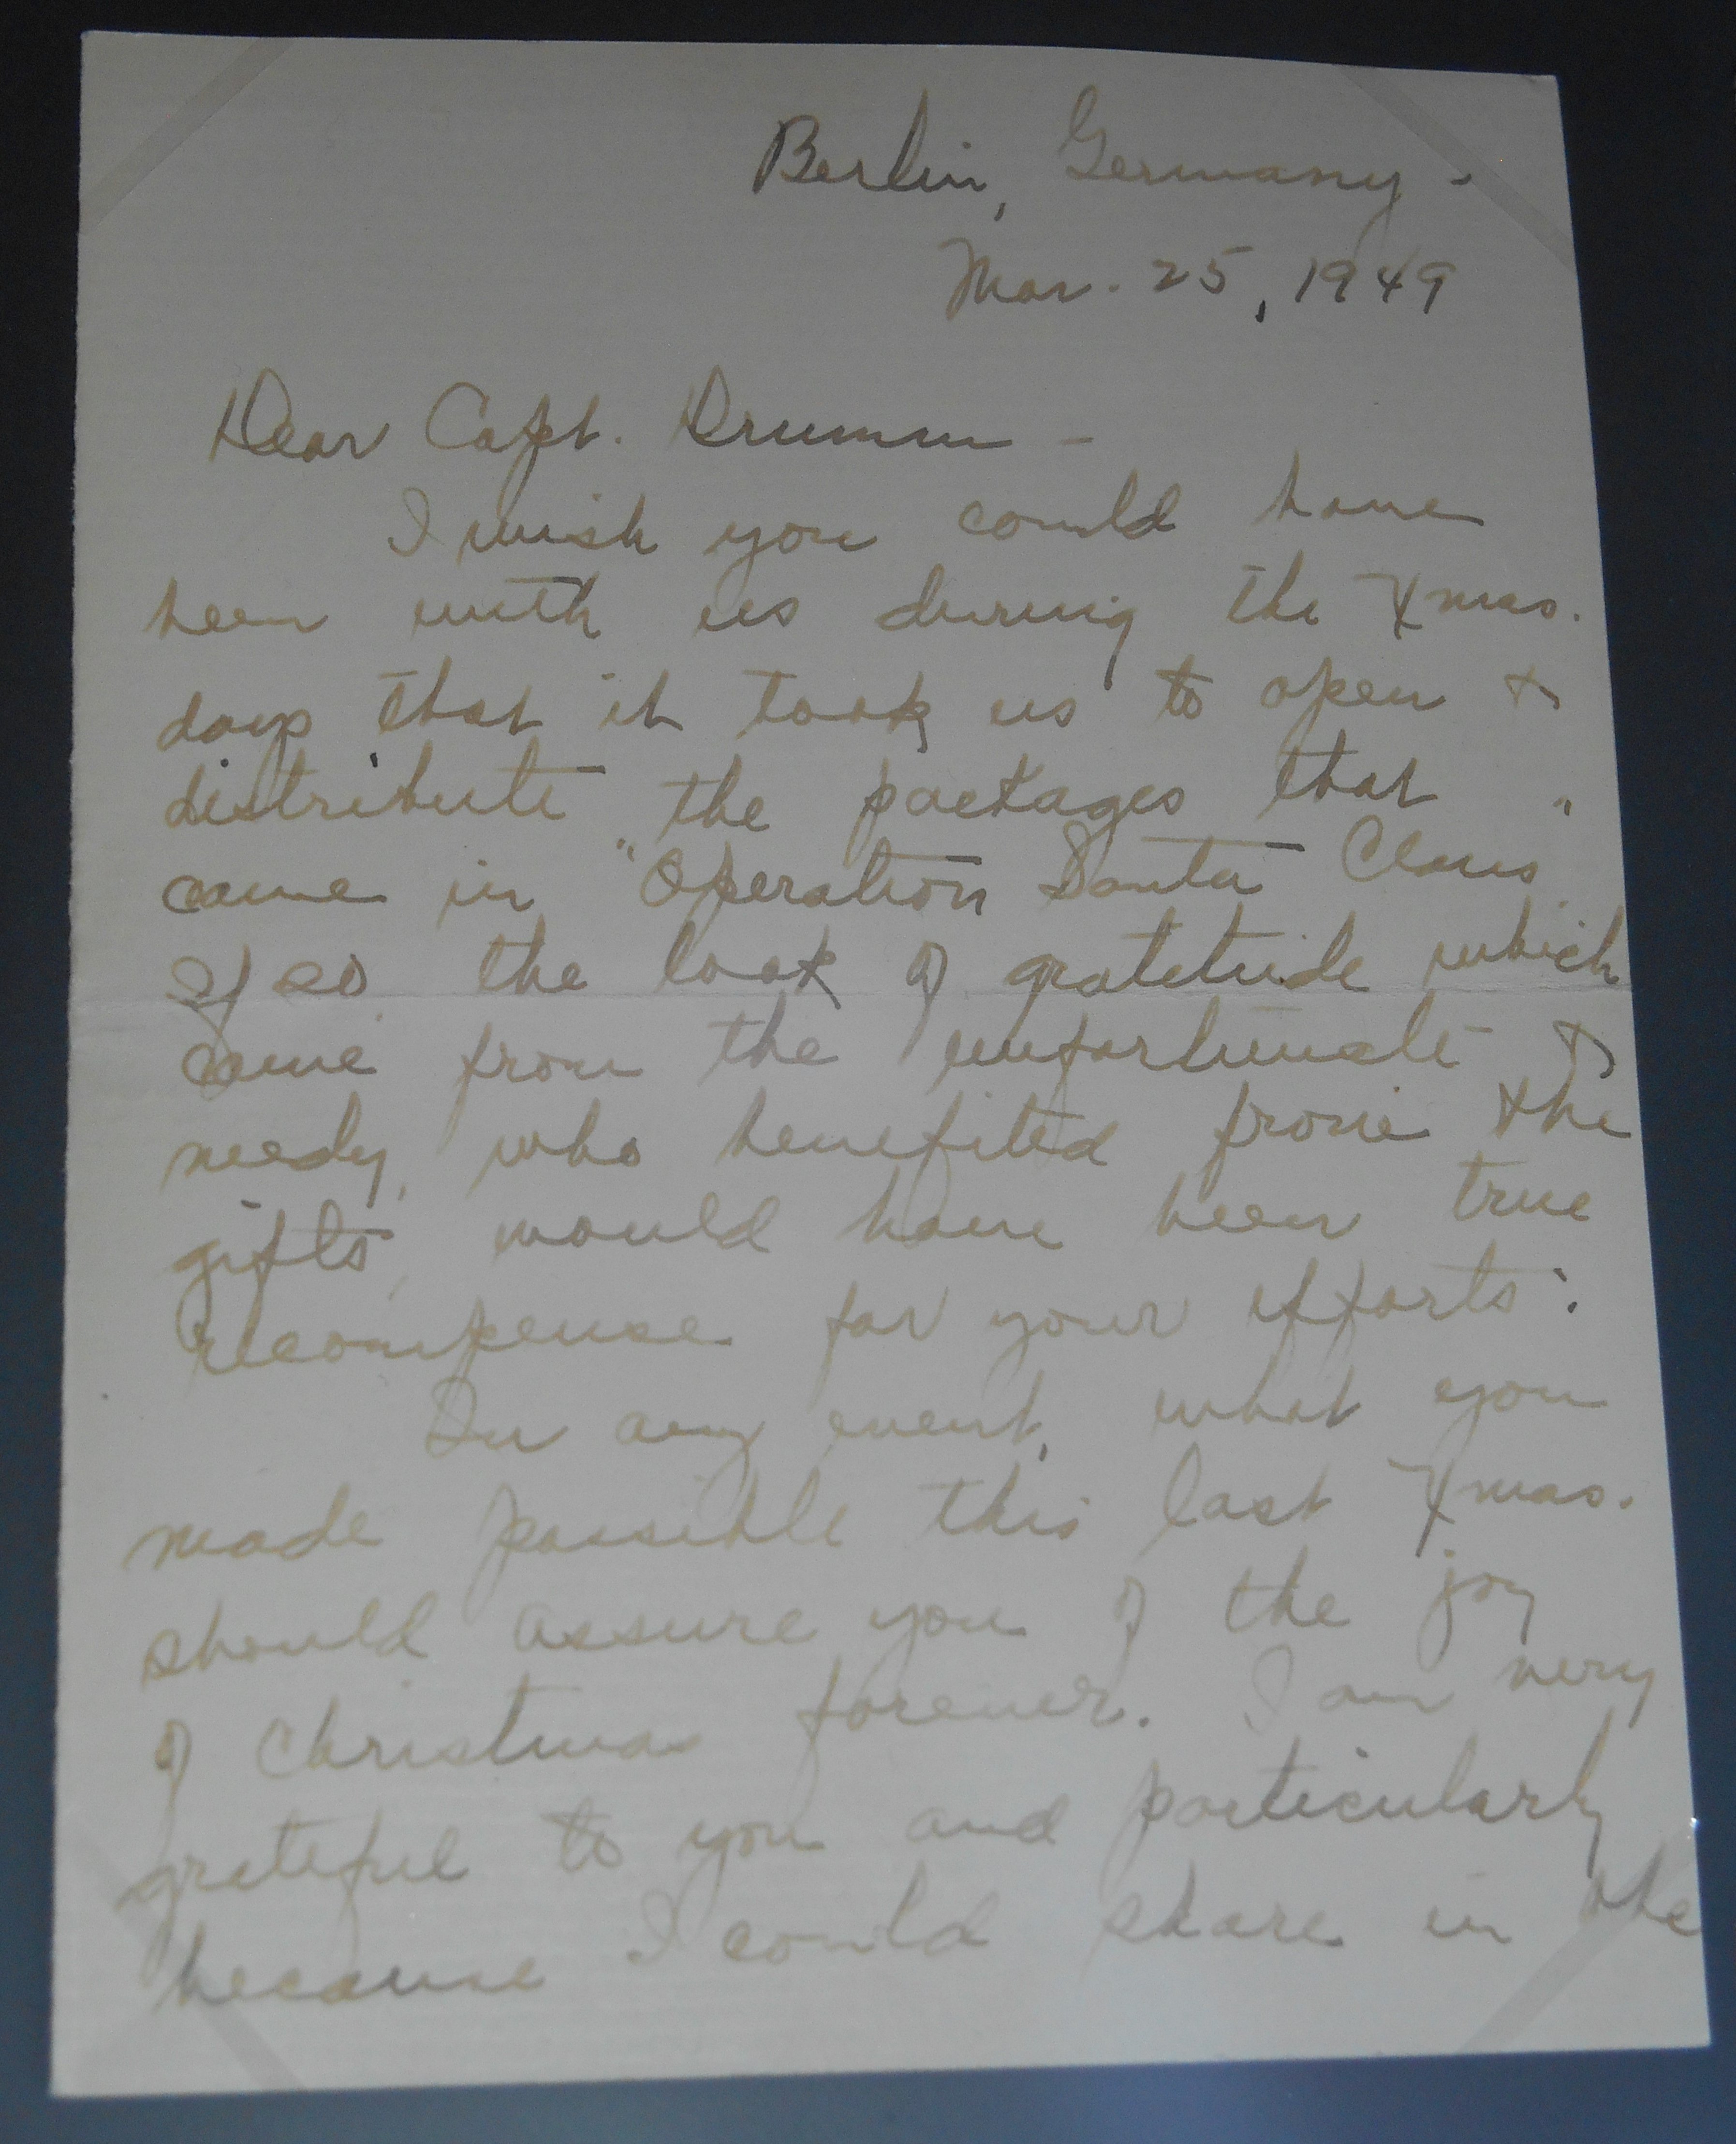 Berlin, Germany -
Mar. 25, 1949
Dear Capt. Drumm -
I wish you could have
been with us during the Xmas.
days that it took us to open &
distribute the packages that
came in "Operation Santa Claus".
If so, the look of gratitude which
came from the unfortunate &
needy, who benefited from the
gifts, would have been true
recompense for your efforts.
In any event, what you
made possible this last Xmas.
should assure you of the joy
of Christmas forever. I am very
grateful to you and particularly
because I could share in the